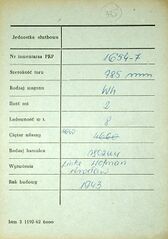 Jednostka służbowa
Nr inwentarza PKP 1654-7
Szerokość toru 785 mm
Rodzaj wagonu Wh
Ilość osi 2
Ładowność w t. 8
Ciężar własny 4660
Rodzaj hamulca ręczny
Wytwórnia Linke Hofman
Wrocław
Rok budowy 1943